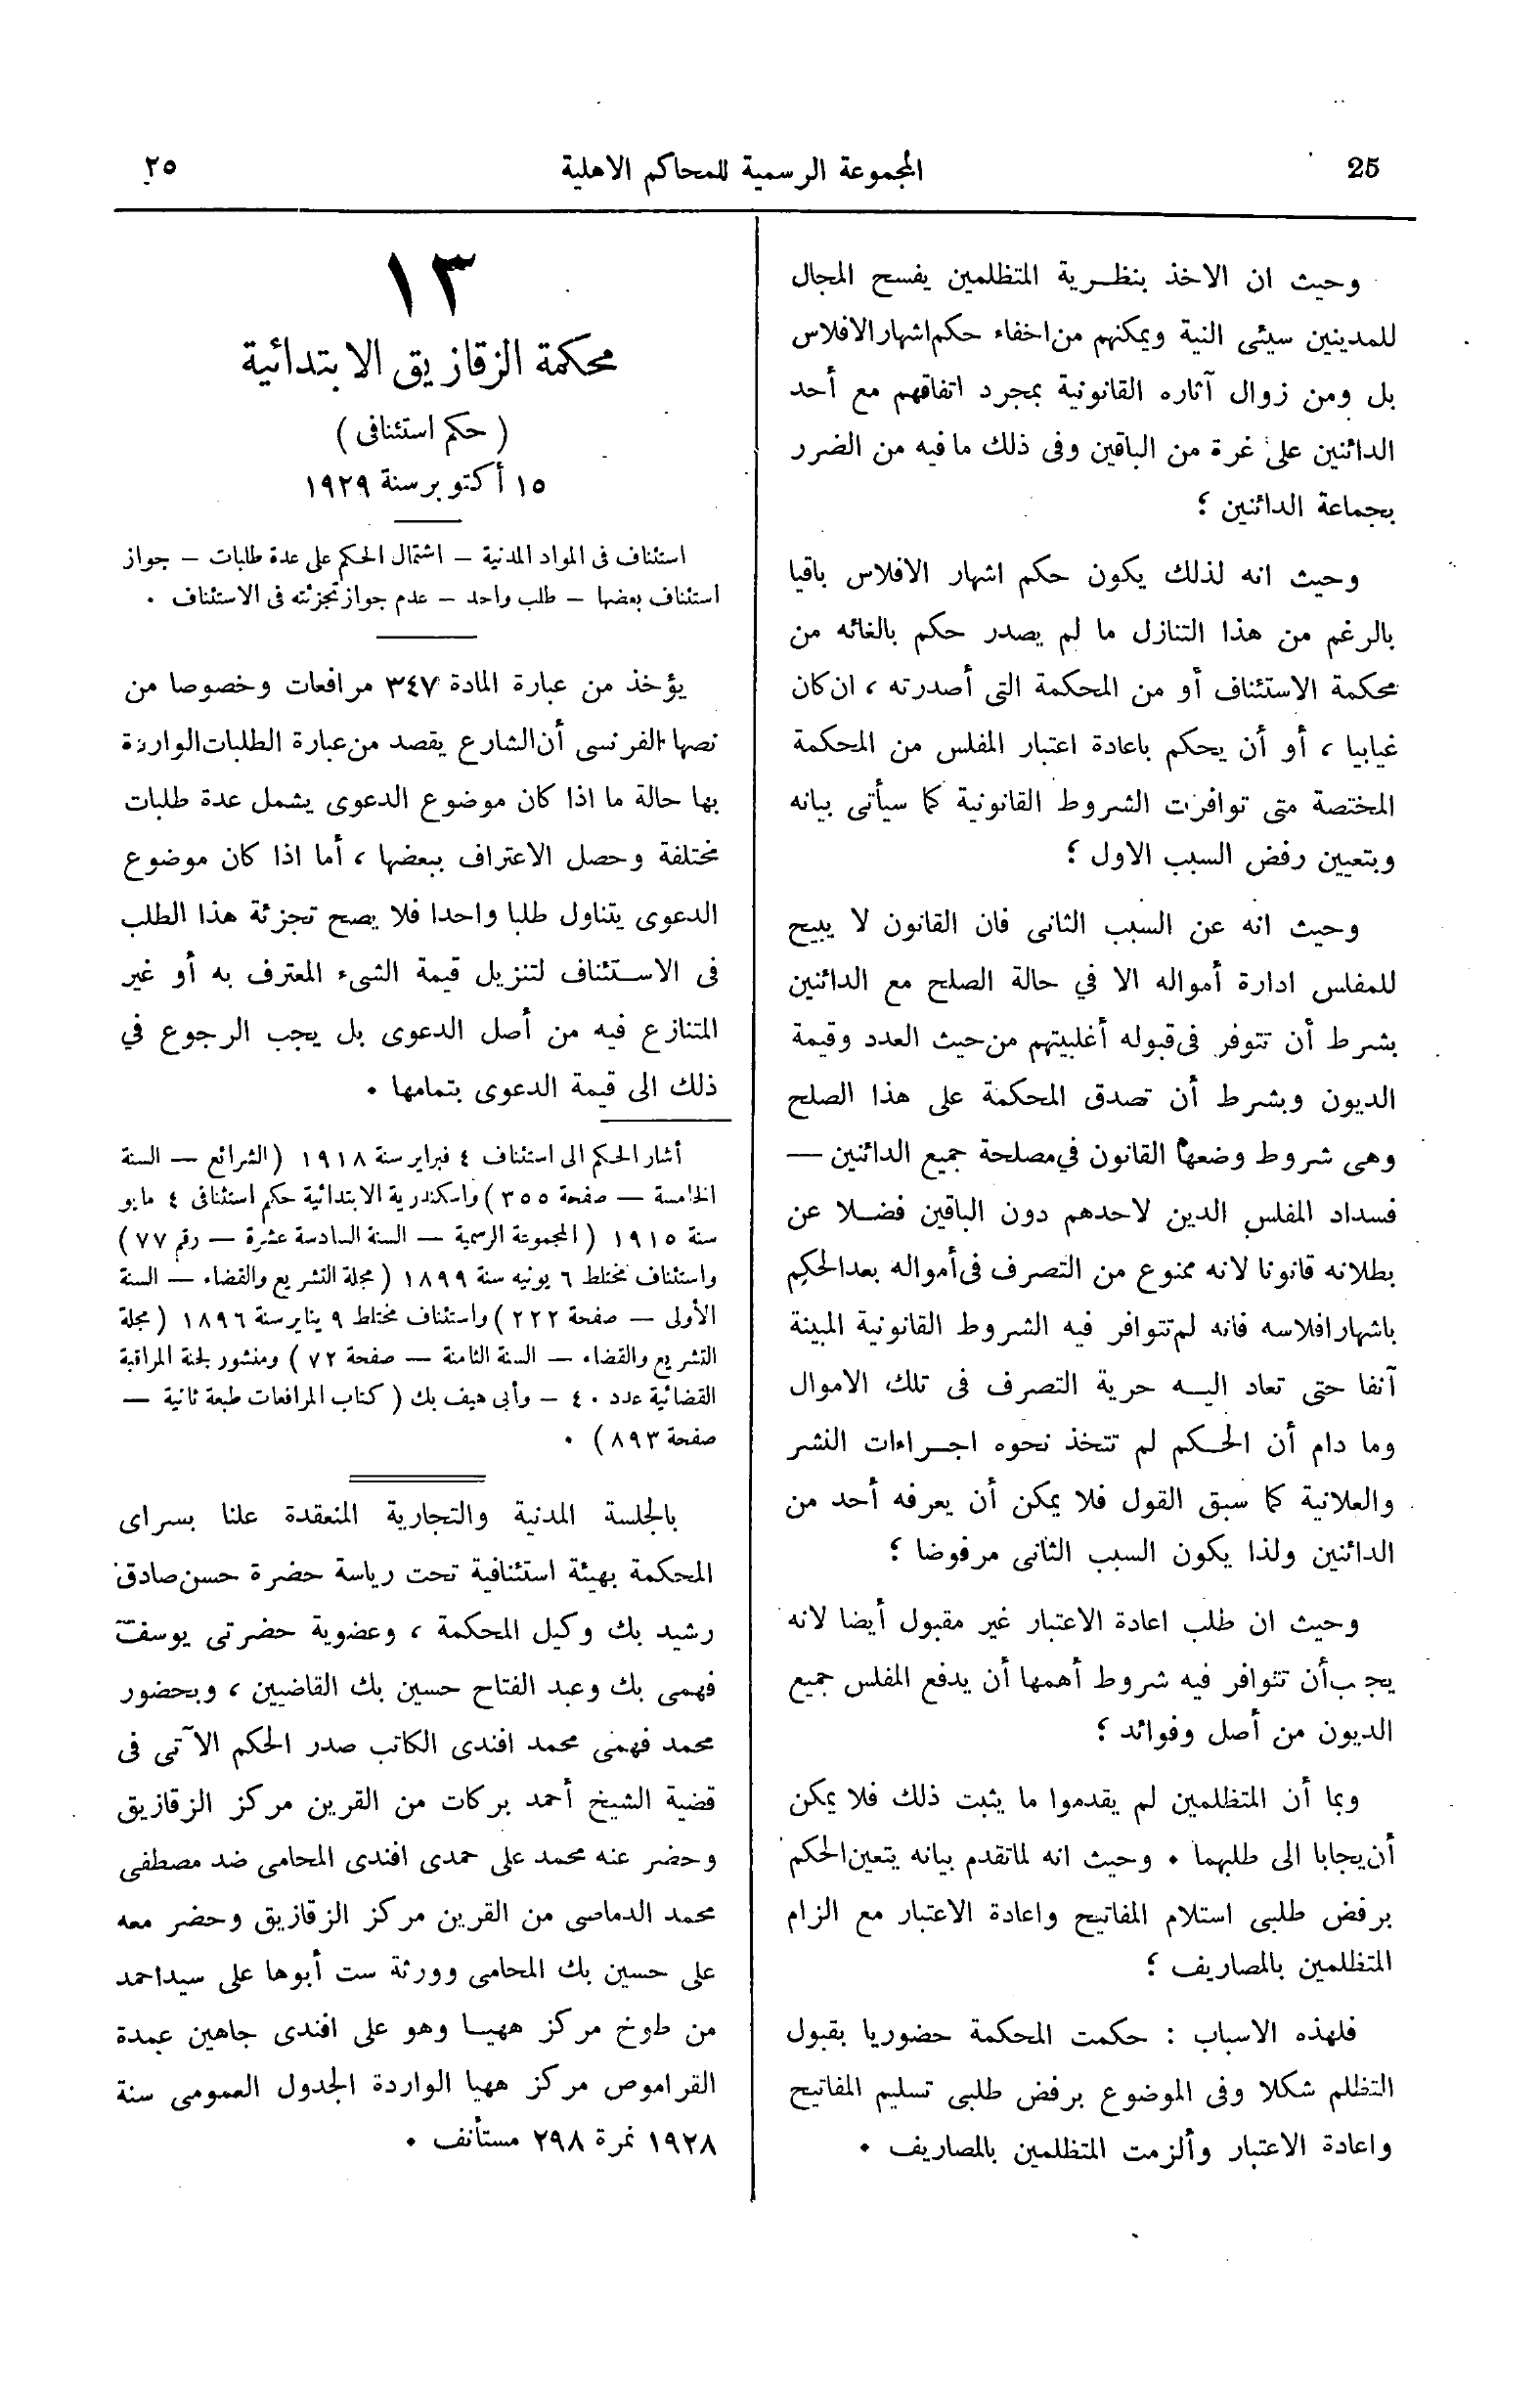 25 المجموعة الرسمية للمحاكم الاهلية ٢٥
وحيث ان الاخذ بنظرية المتظلمين يفسح المجال
للمدينين سيئى النية ويمكنهم من اخفاء حكم اشهار الافلاس
بل ومن زوال آثاره القانونية بمجرد اتفاقهم مع أحد
الدائنين على غرة من الباقين وفى ذلك ما فيه من الضرر
بجماعة الدائنين ؛
وحيث انه لذلك يكون حكم اشهار الافلاس باقيا
بالرغم من هذا التنازل ما لم يصدر حكم بالغائه من
محكمة الاستئناف أو من المحكمة التى أصدرته ، ان كان
غيابيا ، أو أن يحكم باعادة اعتبار المفلس من المحكمة
المختصة متى توافرت الشروط القانونية كما سيأتى بيانه
ويتعيين رفض السبب الاول ؛
وحيث انه عن السبب الثانى فان القانون لا يبيح
للمفلس ادارة أمواله الا في حالة الصلح مع الدائنين
بشرط أن تتوفر فى قبوله أغلبيتهم من حيث العدد وقيمة
الديون وبشرط أن تصدق المحكمة على هذا الصلح
وهى شروط وضعها القانون في مصلحة جميع الدائنين —
فسداد المفلس الدين لاحدهم دون الباقين فضلا عن
بطلانه قانونا لانه ممنوع من التصرف فى أمواله بعد الحكم
باشهار افلاسه فانه لم تتوافر فيه الشروط القانونية المبينة
آنفا حتى تعاد اليه حرية التصرف فى تلك الاموال
وما دام أن الحكم لم تتخذ نحوه اجراءات النشر
والعلانية كما سبق القول فلا يمكن أن يعرفه أحد من
الدائنين ولذا يكون السبب الثانى مرفوضا ؛
وحيث ان طلب اعادة الاعتبار غير مقبول أيضا لانه
يجب أن تتوافر فيه شروط أهمها أن يدفع المفلس جميع
الديون من أصل وفوائد ؛
وبما أن المتظلمين لم يقدموا ما يثبت ذلك فلا يمكن
أن يجابا الى طلبهما . وحيث انه لما تقدم بيانه يتعين الحكم
برفض طلبى استلام المفاتيح واعادة الاعتبار مع الزام
المتظلمين بالمصاريف ؛
فلهذه الاسباب : حكمت المحكمة حضوريا بقبول
التظلم شكلا وفى الموضوع برفض طلبى تسليم المفاتيح
واعادة الاعتبار وألزمت المتظلمين بالمصاريف .
١٣
محكمة الزقازيق الابتدائية
( حكم استئنافى )
١٥ أكتوبر سنة ١٩٢٩
استئناف فى المواد المدنية – اشتمال الحكم على عدة طلبات – جواز
استئناف بعضها – طلب واحد – عدم جواز تجزئته فى الاستئناف .
يؤخذ من عبارة المادة ٣٤٧ مرافعات وخصوصا من
نصها الفرنسى أن الشارع يقصد من عبارة الطلبات الواردة
بها حالة ما اذا كان موضوع الدعوى يشمل عدة طلبات
مختلفة وحصل الاعتراف ببعضها ، أما اذا كان موضوع
الدعوى يتناول طلبا واحدا فلا يصح تجزئة هذا الطلب
فى الاستئناف لتنزيل قيمة الشىء المعترف به أو غير
المتنازع فيه من أصل الدعوى بل يجب الرجوع في
ذلك الى قيمة الدعوى بتمامها .
أشار الحكم الى استئناف ٤ فبراير سنة ١٩١٨ (الشرائع — السنة
الخامسة — صفحة ٣٥٥) واسكندرية الابتدائية حكم استئنافى ٤ مايو
سنة ١٩١٥ (المجموعة الرسمية — السنة السادسة عشرة — رقم ٧٧)
واستئناف مختلط ٦ يونيه سنة ١٨٩٩ (مجلة التشريع والقضاء — السنة
الأولى — صفحة ٢٢٢) واستئناف مختلط ٩ يناير سنة ١٨٩٦ (مجلة
التشريع والقضاء — السنة الثامنة — صفحة ٧٢) ومنشور لجنة المراقبة
القضائية عدد ٤٠ – وأبى هيف بك (كتاب المرافعات طبعة ثانية —
صفحة ٨٩٣) .
بالجلسة المدنية والتجارية المنعقدة علنا بسراى
المحكمة بهيئة استئنافية تحت رياسة حضرة حسن صادق
رشيد بك وكيل المحكمة ، وعضوية حضرتى يوسف
فهمى بك وعبد الفتاح حسين بك القاضيين ، وبحضور
محمد فهمى محمد افندى الكاتب صدر الحكم الآتى فى
قضية الشيخ أحمد بركات من القرين مركز الزقازيق
وحضر عنه محمد على حمدى افندى المحامى ضد مصطفى
محمد الدماصى من القرين مركز الزقازيق وحضر معه
على حسين بك المحامى وورثة ست أبوها على سيد احمد
من طوخ مركز ههيا وهو على افندى جاهين عمدة
القراموص مركز ههيا الواردة الجدول العمومى سنة
١٩٢٨ نمرة ٢٩٨ مستأنف .